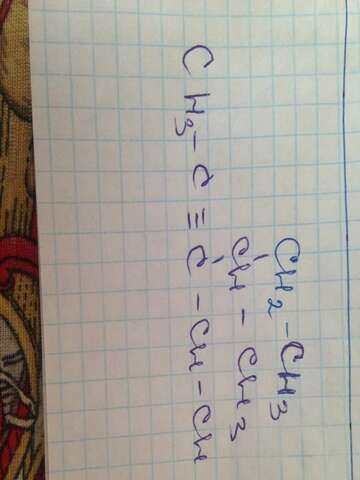 CH2-CH3
CH-CH3
CH3-C≡C-CH-CH